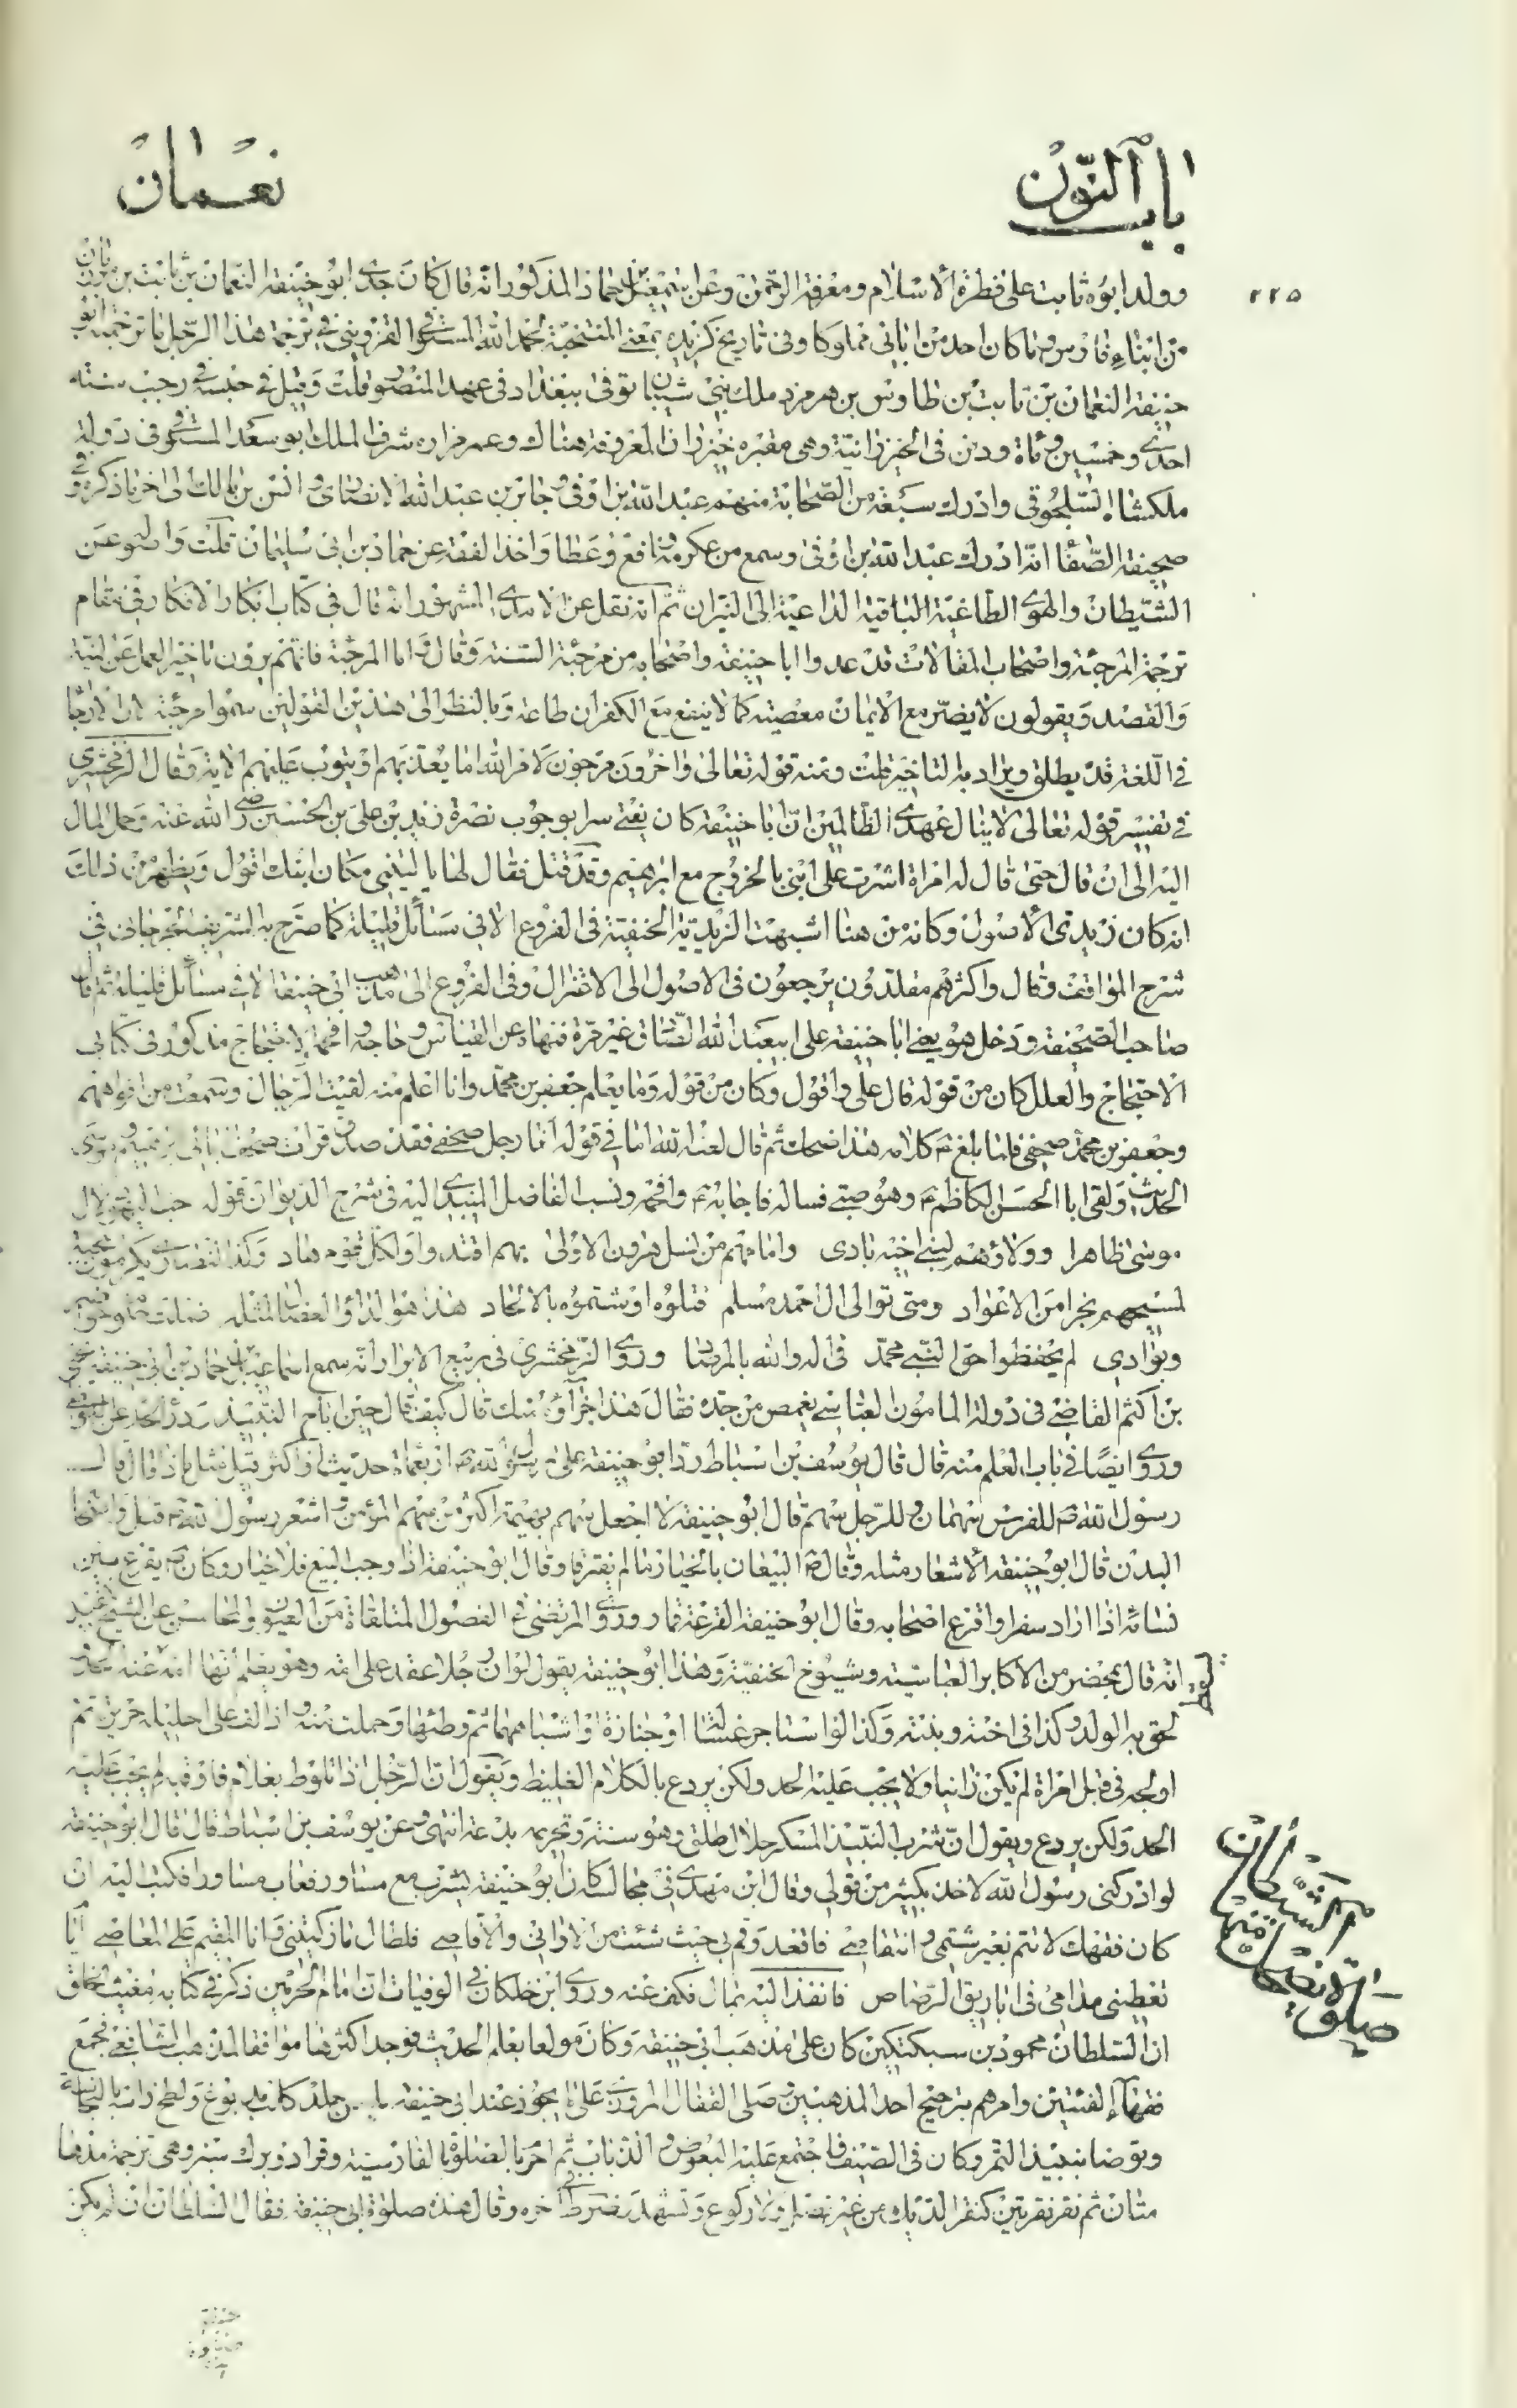 باب النون
نعمان
٢٢٥
وولد ابوه ثابت على فطرة الاسلام ومعرفة الرحمن وعن اسمعيل بن حماد المذكور انه قال كان جدى ابو حنيفة النعمان بن ثابت بن مرزبان
من ابناء فارس وما كان احد من ابائى مملوكا وفى تاريخ كزيده بمعنى المنتخبة لحمد الله المستوفى القزوينى فى ترجمة هذا الرجل ما ترجمته ابو
حنيفة النعمان بن ثابت بن طاوس بن هرمزد ملك بنى شيبان توفى ببغداد فى عهد المنصور قلت وقيل فى حبسه فى رجب سنة
احدى وخمسين ومائة ودفن فى الخيزرانية وهى مقبره خيزران المعروفة هناك وعمر مزاره شرف الملك ابو سعد المستوفى فى دولة
ملكشاه السلجوقى وادرك سبعة من الصحابة منهم عبد الله بن اوفى وجابر بن عبد الله الانصارى وانس بن مالك الى اخر ما ذكره وفى
صحيفة الصفا انه ادرك عبد الله بن اوفى وسمع من عكرمة ونافع وعطا واخذ الفقه عن حماد بن ابى سليمان قلت و عن
الشيطان والهوى الطاغية الباقية الداعية الى النيران ثم انه نقل عن الامدى المشهور انه قال فى كتاب ابكار الافكار فى مقام
ترجمة المرجئة واصحاب المقالات قد عدوا ابا حنيفة واصحابه من مرجئة السنة وقال اما المرجئة فانهم يرون تاخير العمل عن النية
والقصد ويقولون لا يضر مع الايمان معصية كما لا ينفع مع الكفران طاعة وبالنظر الى هذين القولين سموا مرجئة لان الارجا
فى اللغة قد يطلق ويراد به التاخير قلت ومنه قوله تعالى واخرون مرجون لامر الله اما يعذبهم او يتوب عليهم الاية وقال الزمخشرى
فى تفسير قوله تعالى لا ينال عهدى الظالمين ان ابا حنيفة كان يفتى سرا بوجوب نصرة زيد بن على بن الحسين رضى الله عنه وحمل المال
اليه الى ان قال حتى قال له امراة اشرت على ابنى بالخروج مع ابرهيم وقد قتل فقال لها يا ليتنى مكان ابنك اقول ويظهر من ذلك
انه كان زيدى الاصول وكانه من هنا اشبهت الزيدية الحنفية فى الفروع الا فى مسائل قليلة كما صرح به الشريف الجرجانى فى
شرح المواقف وقال واكثرهم مقلدون يرجعون فى الاصول الى الاعتزال وفى الفروع الى مذهب ابى حنيفة الا فى مسائل قليلة ثم قال
صاحب الصحيفة ودخل هو يعنى ابا حنيفة على ابيعبد الله الصادق غير مرة فنهاه عن القياس وحاجه وافحمه الاحتجاج مذكور فى كتابى
الاحتجاج والعلل كان من قوله قال على واقول وكان من قوله وما يعلم جعفر بن محمد وانا اعلم منه لقيت الرجال وسمعت من افواههم
وجعفر بن محمد صحفى فلما بلغه كلامه هذا ضحك ثم قال لعنه الله اما فى قوله انا رجل صحفى فقد صدق قرات صحف ابائى ابرهيم وموسى
الحديث ولقى ابا الحسن الكاظم وهو صبى فساله فاجابه وافحمه ونسب الفاضل الميبدى اليه فى شرح الديوان قوله حب اليهود لال
موسى ظاهرا وولاؤهم لبنى اخيه بادى وامامهم من نسل هرون الاولى بهم اقتدوا ولكل قوم هاد وكذا النصارى يكرمون محبة
لمسيحهم نجرا من الاعواد ومتى توالى ال احمد مسلم قتلوه او شتموه بالالحاد هذا هو الداء العضال لمثله ضلت حلوم حواضر
وبوادى لم يحفظوا حق النبى محمد فى اله والله بالمرصاد وروى الزمخشرى فى ربيع الابرار انه سمع اسماعيل بن حماد بن ابى حنيفة يحيى
بن اكثم القاضى فى دولة المامون العباسى يغمص من جده فقال هذا جزاؤه منك قال كيف قال حين اباح النبيذ ودرا الحد عن
وروى ايضا فى باب العلم منه قال قال يوسف بن اسباط رد ابو حنيفة على رسول الله اربعمائة حديث او اكثر قيل مثل ماذا قال قال
رسول الله للفرس سهمان وللرجل سهم قال ابو حنيفة لا اجعل سهم بهيمة اكثر من سهم المؤمن واشعر رسول الله واصحابه
البدن قال ابو حنيفة الاشعار مثله وقال البيعان بالخيار ما لم يفترقا وقال ابو حنيفة اذا وجب البيع فلا خيار وكان يقرع بين
نسائه اذا اراد سفرا واقرع اصحابه وقال ابو حنيفة القرعة قمار وروى المرتضى فى الفصول الملتقاة من العيون والمحاسن عن الشيخ المفيد
انه قال بمحضر من الاكابر العباسية وشيوخ الحنفية وهذا ابو حنيفة يقول لو ان رجلا عقد على امه وهو يعلم انها امه عنه الحد
لحق به الولد وكذا فى اخته وبنته وكذا لو استاجر غسالة او خبازة او اشباههما ثم وطئها وحملت منه واذا لف على احليله حريرة ثم
اولجه فى قبل امراة لم يكن زانيا ولا يجب عليه الحد ولكن يردع بالكلام الغليظ ويقول ان الرجل اذا تلوط بغلام فاوقبه لم يجب عليه
الحد ولكن يردع ويقول ان شرب النبيذ المسكر حلال طلق وهو سنة وتحريمه بدعة انتهى وعن يوسف بن اسباط قال قال ابو حنيفة
لو ادركنى رسول الله لاخذ بكثير من قولى وقال ابن مهدى فى مجالسه كان ابو حنيفة يشرب مع مساور فعاب مساورا فكتب اليه ان
كان فقهك لا يتم بغير شتمى وانتقاصى فاقعد وقم بى حيث شئت من الادانى والاقاصى فلطال ما زكيتنى وانا المقيم على المعاصى ايام
تعطينى مدامى فى اباريق الرصاص فانفذ اليه بمال فكف عنه وروى ابن خلكان فى الوفيات ان امام الحرمين ذكر فى كتابه مغيث الخلق
ان السلطان محمود بن سبكتكين كان على مذهب ابى حنيفة وكان مولعا بعلم الحديث فوجد اكثرها موافقا لمذهب الشافعى فجمع
فقهاء الفئتين وامرهم بترجيح احد المذهبين صلى القفال المروزى على ما يجوز عند ابى حنيفة جلد كلب مدبوغ ولطخ رابعه بالنجاسة
وتوضا بنبيذ التمر وكان فى الصيف فاجتمع عليه البعوض والذباب ثم احرم بالصلوة بالفارسية وقرا دو برك سبز وهى ترجمة مدهامتان
ثم نقر نقرتين كنقر الديك من غير فصل ولا ركوع وتشهد وضرط فى اخره وقال هذه صلوة ابى حنيفة فقال السلطان ان لم يكن